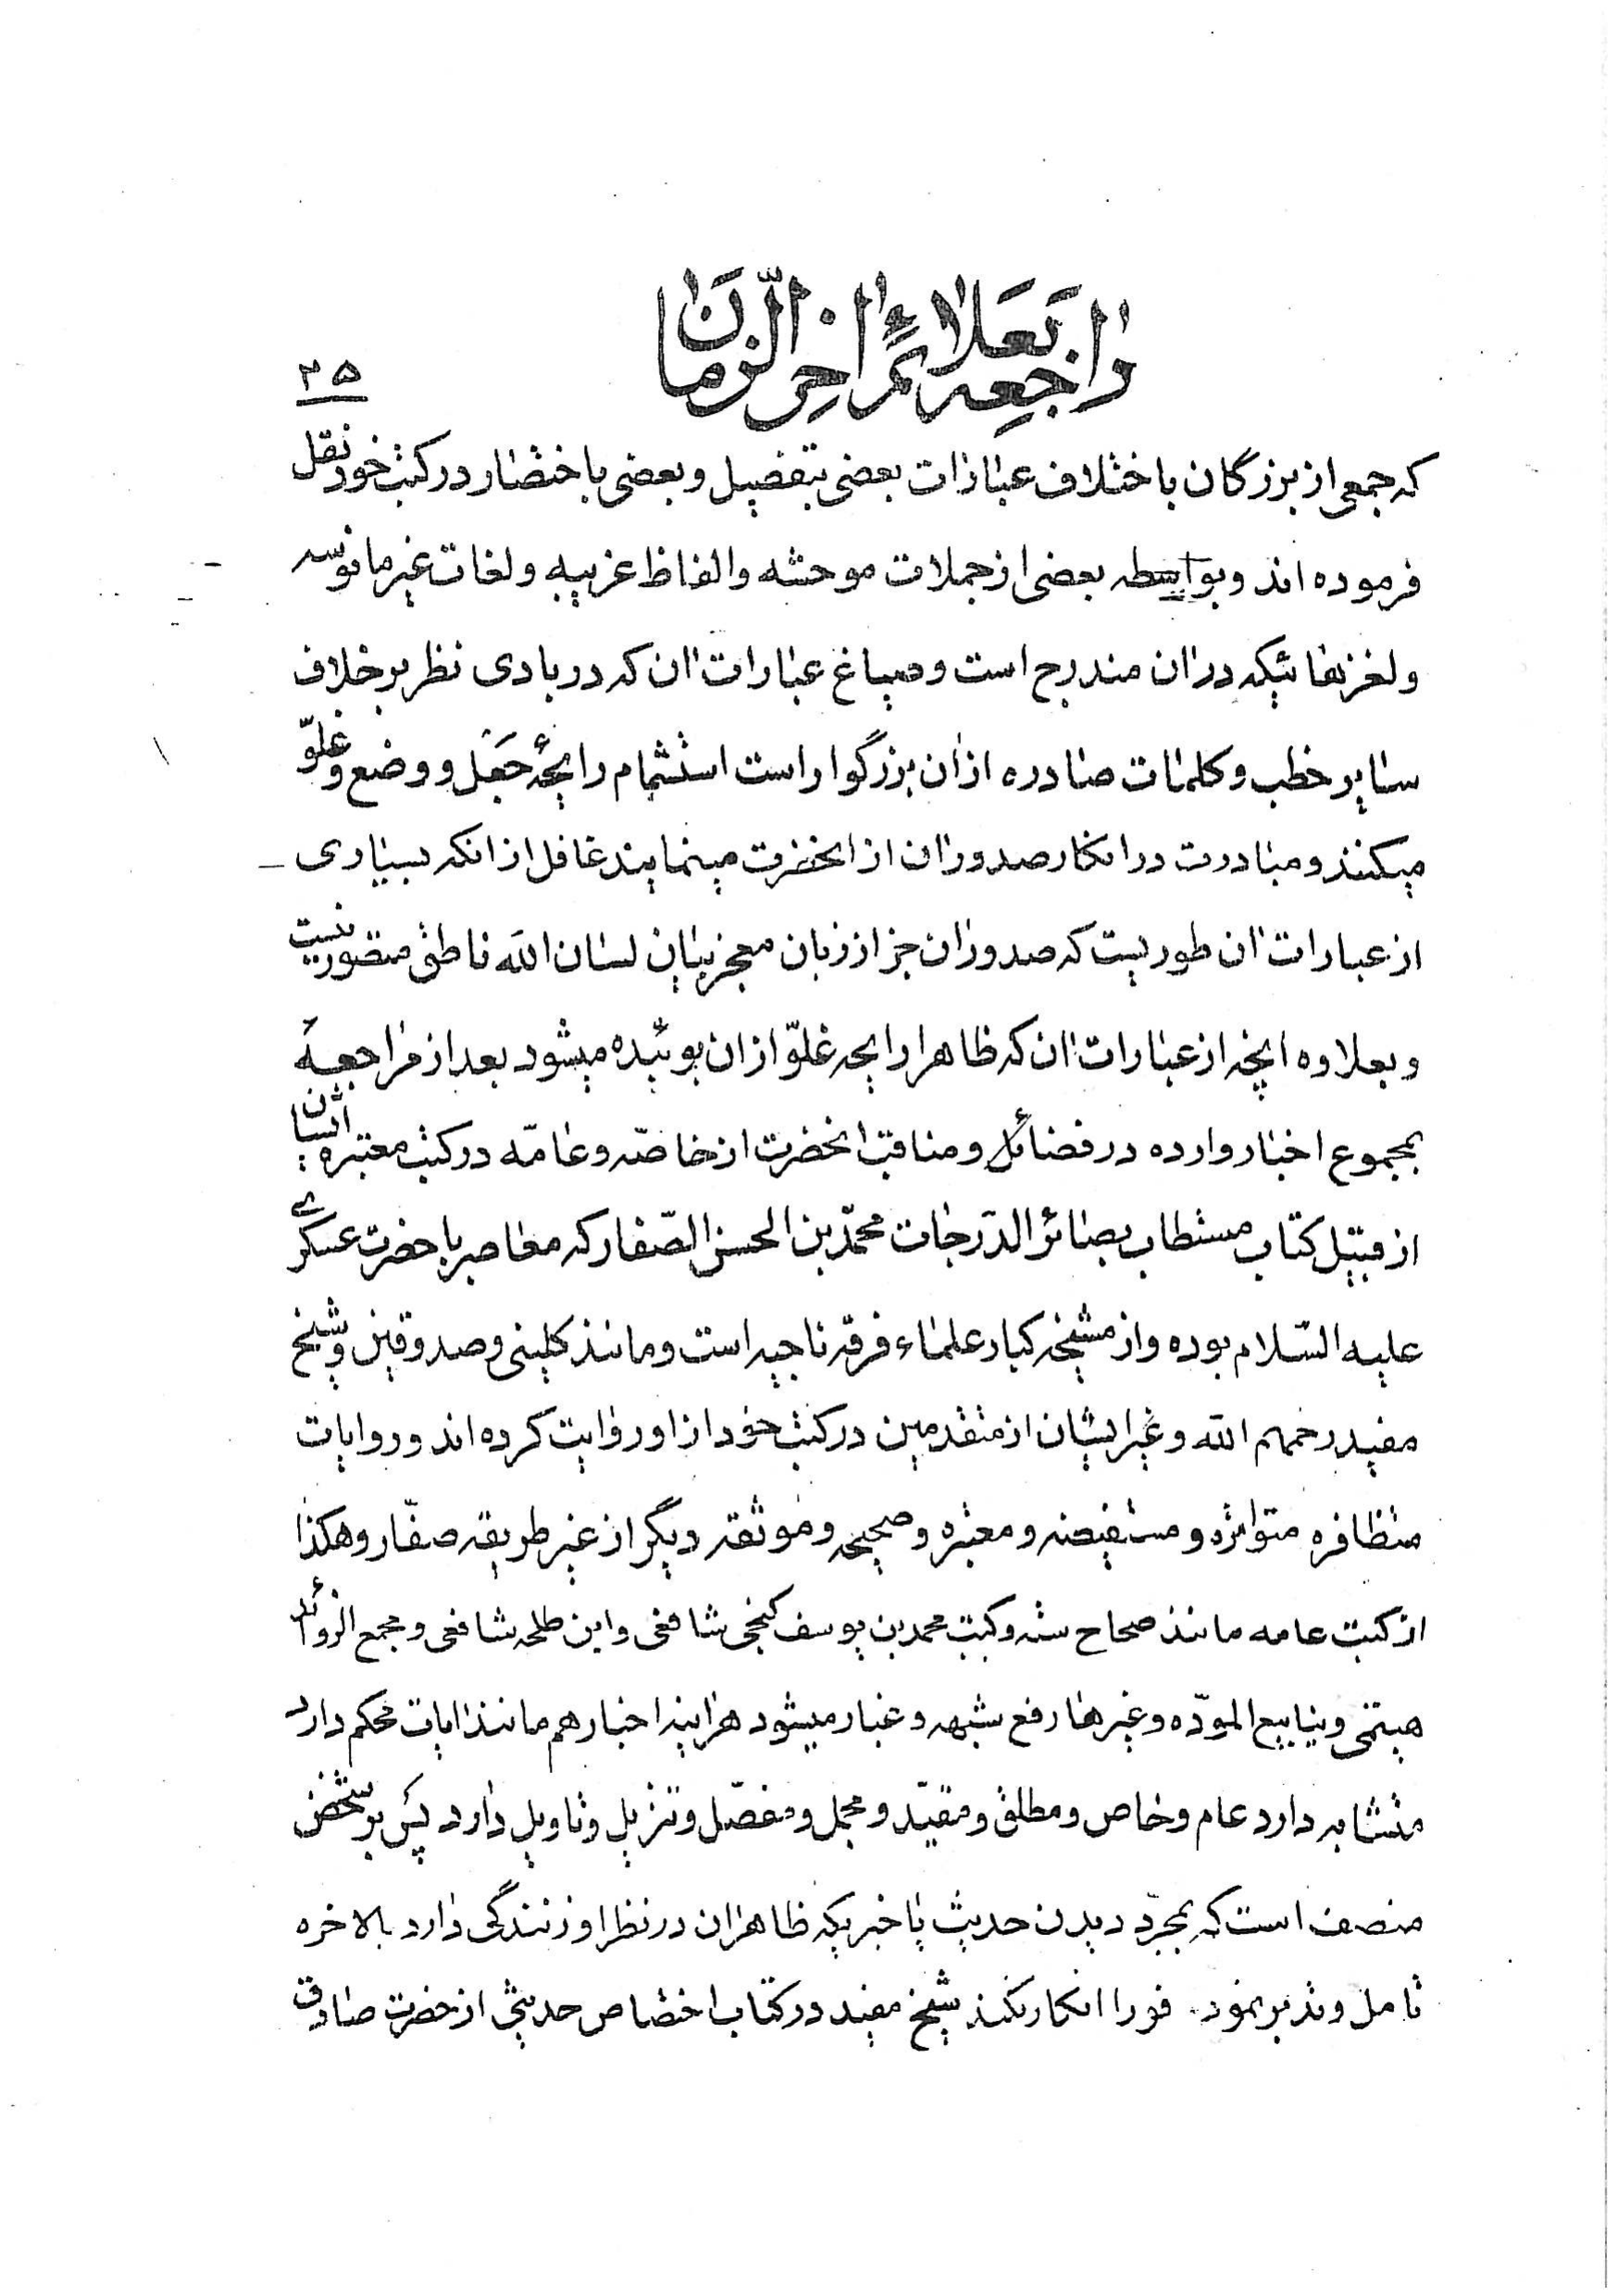 راجعه بعلائم اخر الزمان
۲۵
که جمعی از بزرگان باختلاف عبارات بعضی بتفصیل و بعضی باختصار در کتب خود نقل
فرموده اند و بواسطه بعضی از جملات موحشه و الفاظ غریبه و لغات غیر مانوسه
و لغزهائیکه در ان مندرج است و صیاغ عبارات ان که در بادی نظر بر خلاف
سایر خطب و کلمات صادره از ان بزرگوار است استشمام رایحۀ جَعل و وضع و غلوّ
میکنند و مبادرت در انکار صدور ان از انحضرت مینمایند غافل از انکه بسیاری
از عبارات ان طوریست که صدور ان جز از زبان معجز بیان لسان الله ناطق متصور نیست
و بعلاوه انچه از عبارات ان که ظاهرا رایحه غلوّ از ان بوئیده میشود بعد از مراجعه
بمجموع اخبار وارده در فضائل و مناقب انحضرت از خاصّه و عامّه در کتب معتبره ایشان
از قبیل کتاب مستطاب بصائر الدّرجات محمّد بن الحسن الصّفار که معاصر با حضرت عسکری
علیه السّلام بوده و از مشیخه کبار علماء فرقه ناجیه است و مانند کلینی و صدوقین و شیخ
مفید رحمهم الله و غیر ایشان از متقدمین در کتب خود از او روایت کرده اند و روایات
متظافره متواتره و مستفیضه و معتبره و صحیحه و موثقه دیگر از غیر طریقه صفّار و هکذا
از کتب عامه مانند صحاح سته و کتب محمد بن یوسف کنجی شافعی و ابن طلحه شافعی و مجمع الزوائد
هیتمی و ینابیع المودّه و غیرها رفع شبهه و غبار میشود هراینه اخبار هم مانند ایات محکم دارد
متشابه دارد عام و خاص و مطلق و مقیّد و مجمل و مفصّل و تنزیل و تاویل دارد پس بر شخص
منصف است که بمجرّد دیدن حدیث یا خبریکه ظاهر ان در نظر او زنندگی دارد بالاخره
تامل و تدبر نمود. فورا انکار نکند شیخ مفید در کتاب اختصاص حدیثی از حضرت صادق